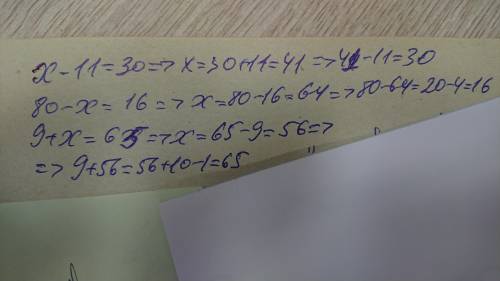 x-11=30=>x=30+11=41=>41-11=30
80-x=16=>x=80-16=64=>80-64=20-4=16
9+x=65=>x=65-9=56=>
=>9+56=56+10-1=65